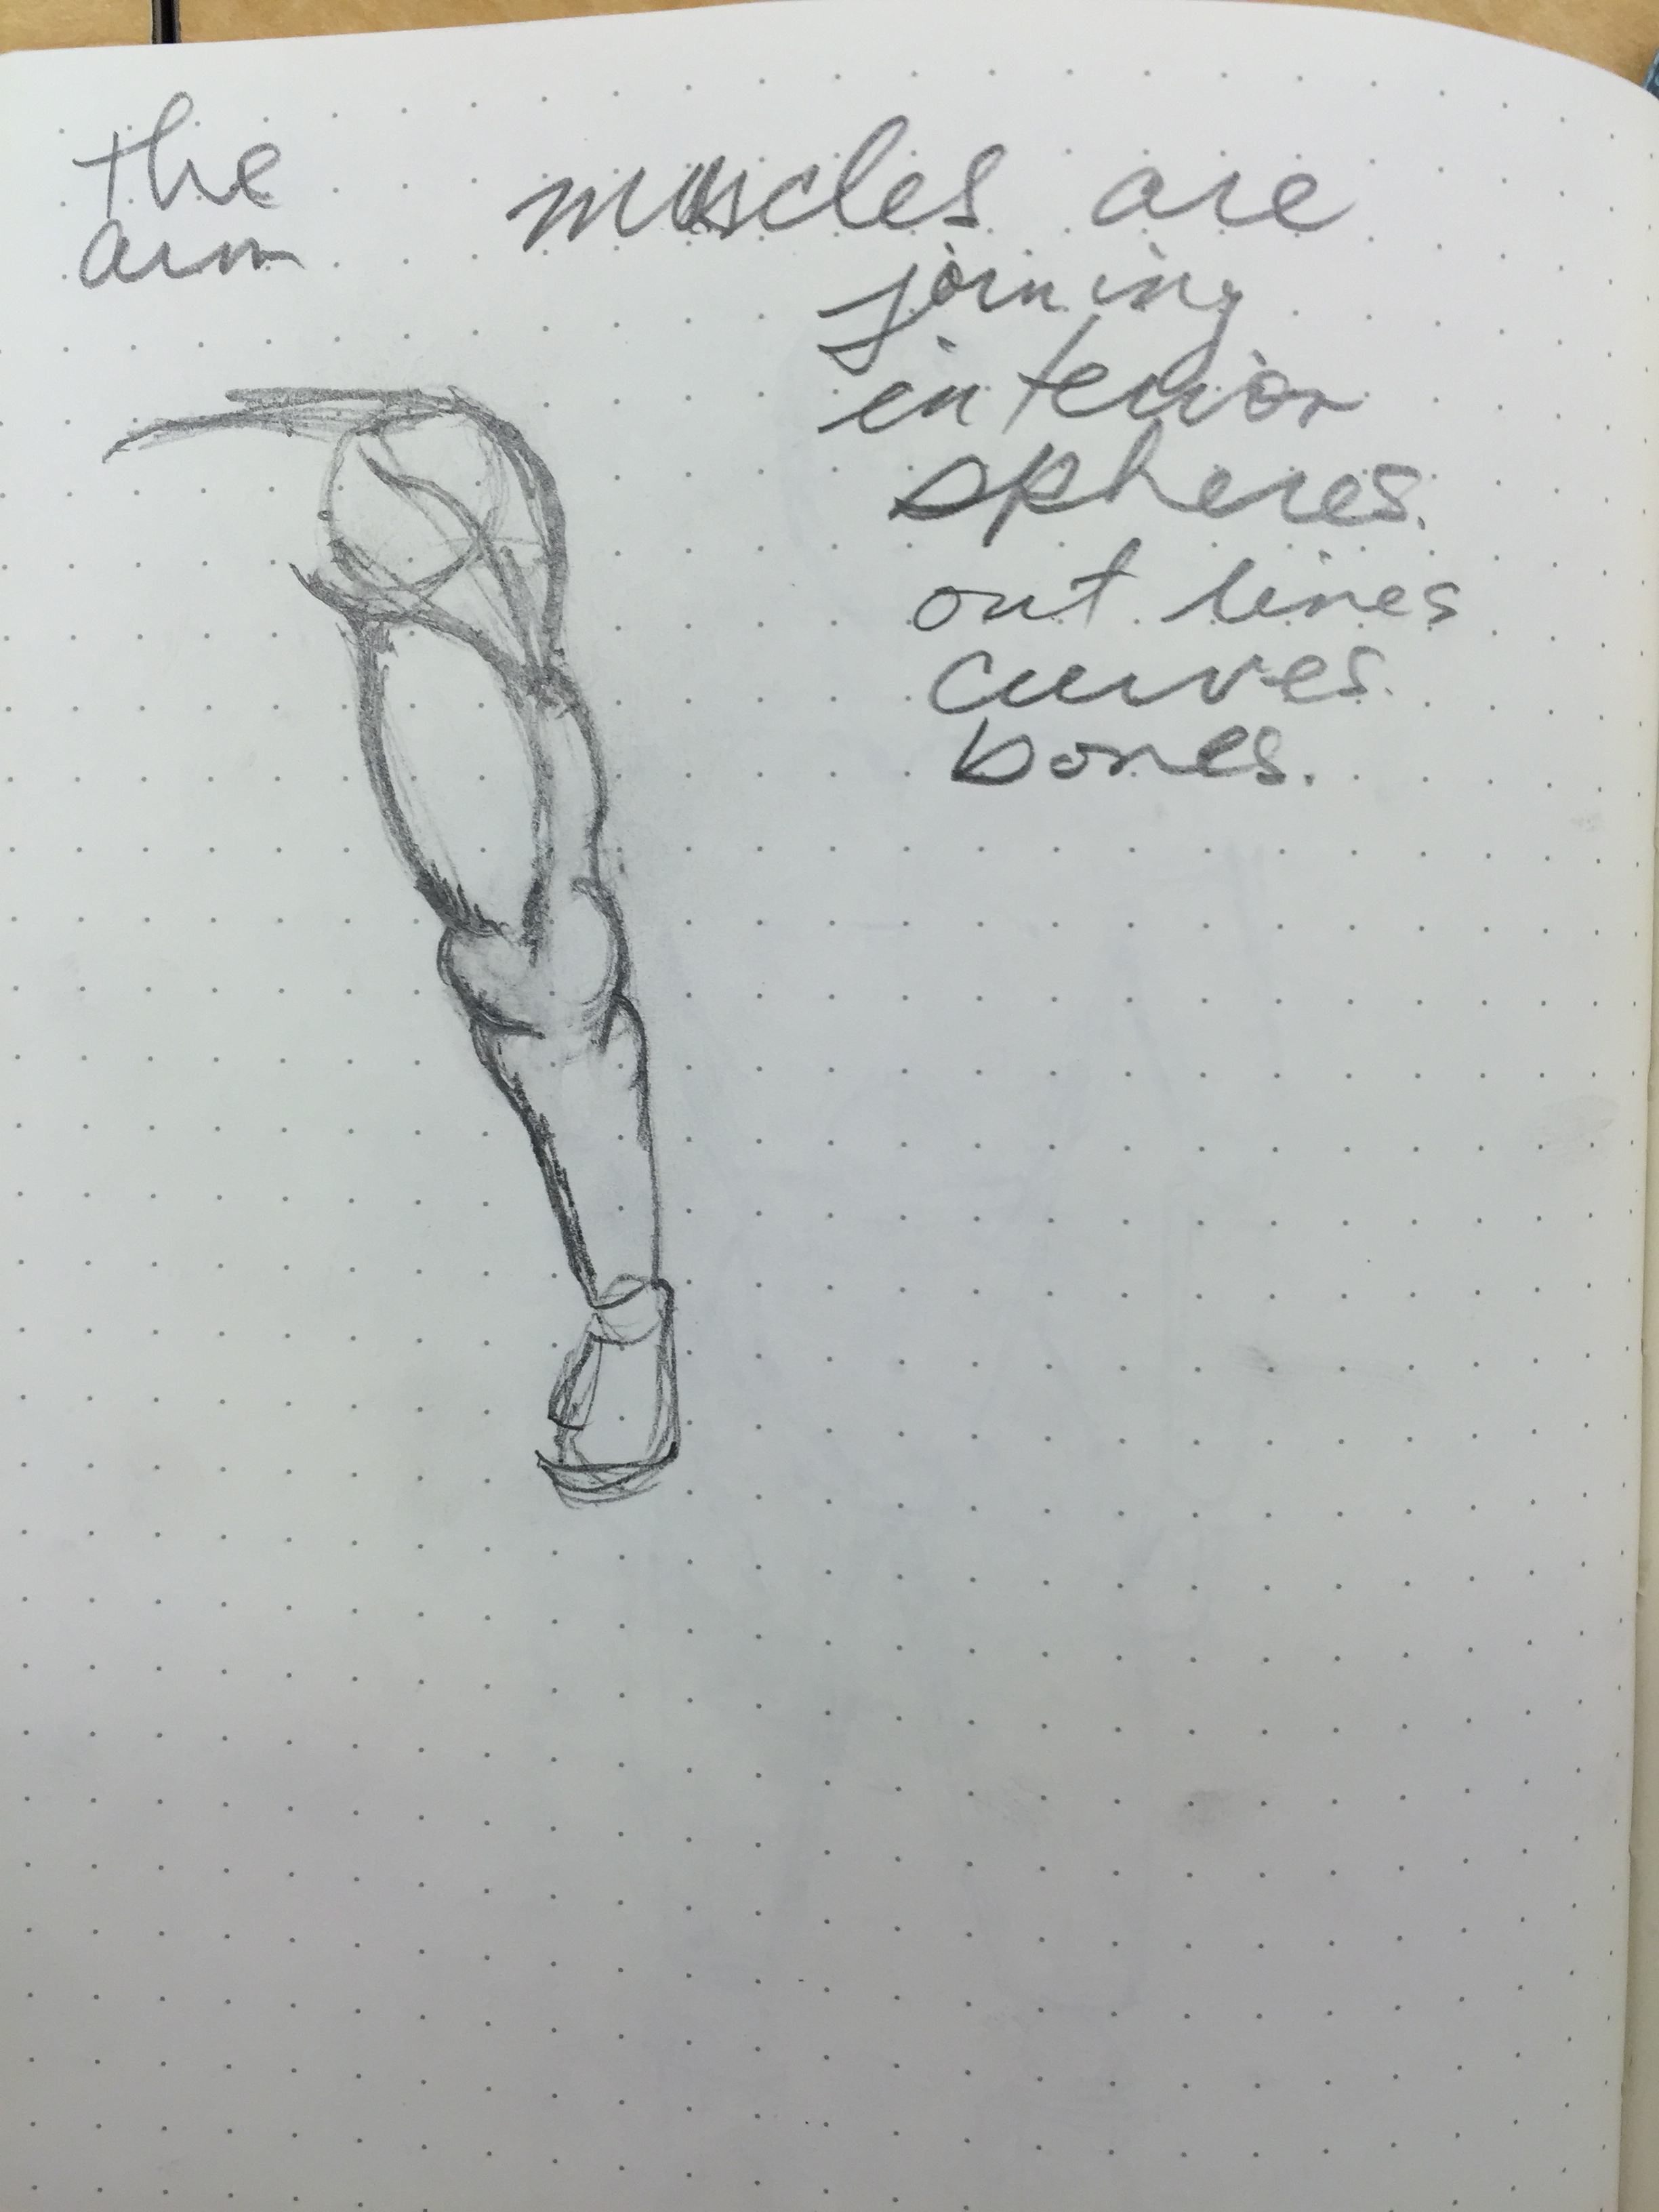 the
arm
muscles are
joining
interior
spheres.
out lines
curves.
bones.